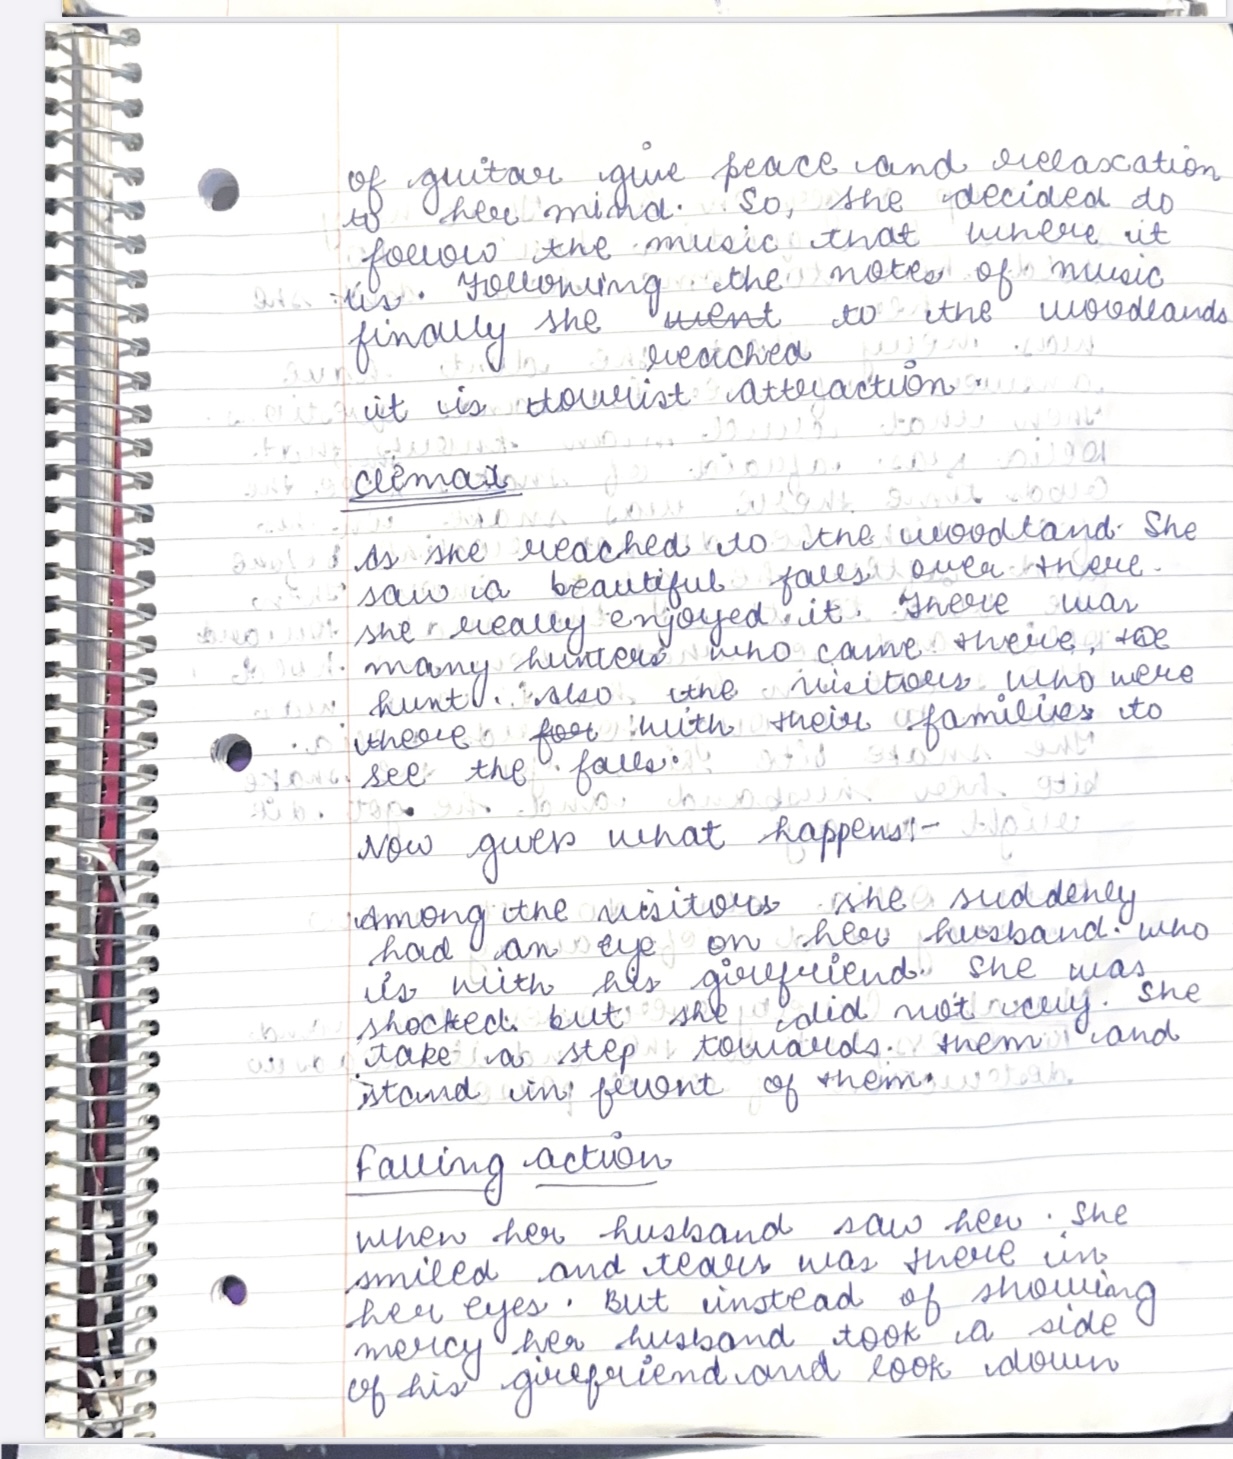 of guitar give peace and relaxation
to her mind. So, she decided to
follow the music that where it
is. Following the notes of music
finally she went to the woodlands
reached
it is tourist attraction.
Climax
As she reached to the woodland. She
saw a beautiful falls over there.
she really enjoyed it. There was
many hunters who came there, toe
hunt. Also the visitors who were
there for with their families to
see the falls.
Now guess what happens:-
Among the visitors she suddenly
had an eye on her husband. who
is with his girlfriend. She was
shocked but she did not cry. She
take a step towards them and
stand in front of them.
Falling action
When her husband saw her. She
smiled and tears was there in
her eyes. But instead of showing
mercy her husband took a side
of his girlfriend and look down